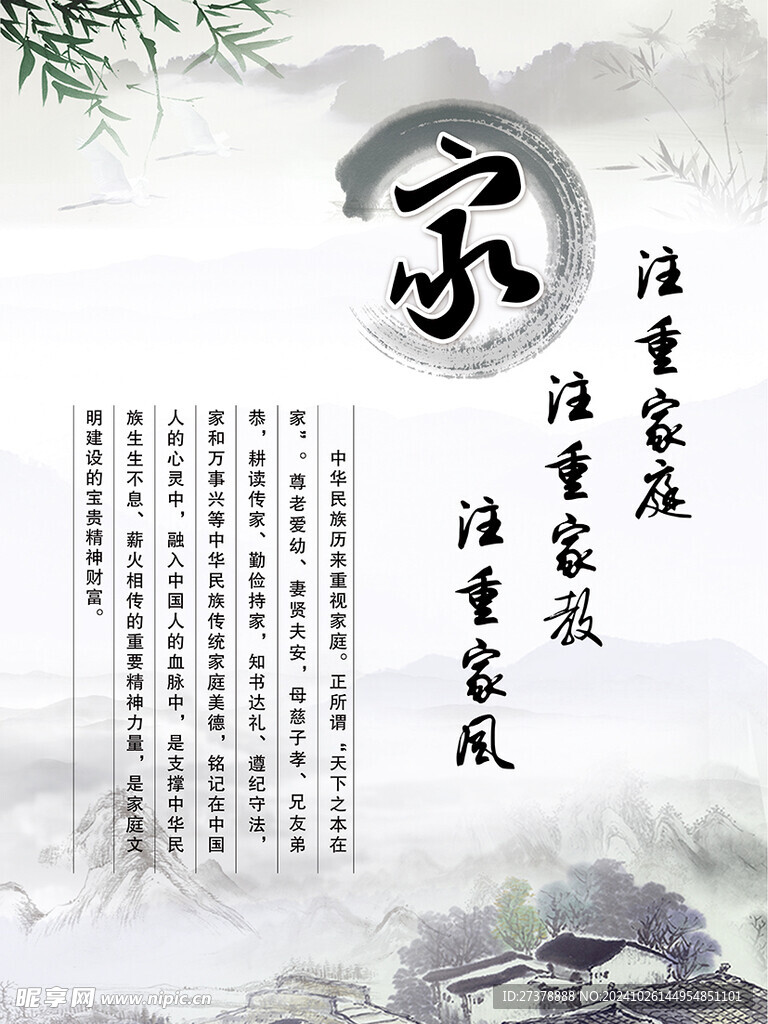 家
注重家庭
注重家教
注重家风
中华民族历来重视家庭。正所谓“天下之本在
家”。尊老爱幼、妻贤夫安，母慈子孝、兄友弟
恭，耕读传家、勤俭持家，知书达礼、遵纪守法，
家和万事兴等中华民族传统家庭美德，铭记在中国
人的心灵中，融入中国人的血脉中，是支撑中华民
族生生不息、薪火相传的重要精神力量，是家庭文
明建设的宝贵精神财富。
昵享网 www.nipic.cn
ID:27378888 NO:20241026144954851101